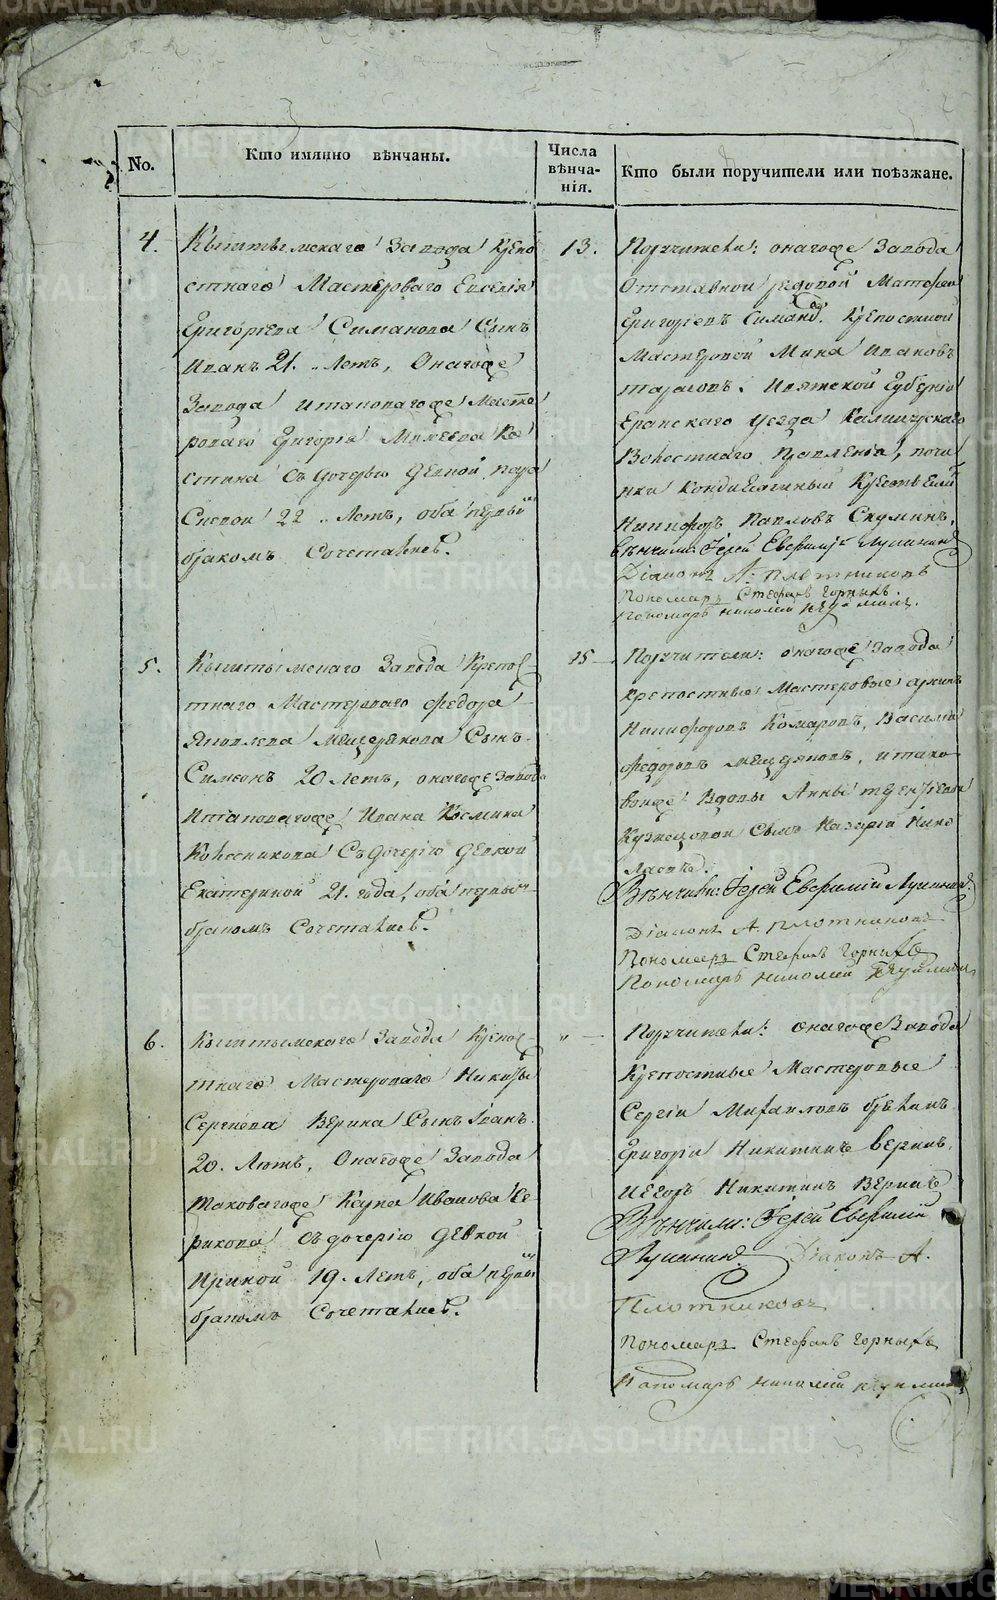 No.
Кто имянно вѣнчаны.
Числа вѣнча-
нія.
Кто были поручители или поѣзжане.
4.
Кыштымскаго Завода Крепо
стнаго Мастероваго Евсевія
Григорьева Симанова Сынъ
Иванъ 21. Летъ, Онагоже
Завода и таковагоже Масте
роваго Григорія
стина Съ дочерью девкой
22 Летъ, оба первый
бракомъ Сочетались.
13.
Поручители: онагоже Завода
Отставной редовой Матфей
Григорьевъ Симанов. Крепостной
Мастеровой Мина Иваковъ
Вятской Губерніи
Еранскаго уезда
Волостнаго Правленія, почи
нка Крестьянинъ
Никифоръ Павловъ
вѣнчали: Іерей Евфимій Лучининъ
Діаконъ А. Плотниковъ
Пономарь Стефанъ Горныхъ.
Пономарь Николай
5.
Кыштымскаго Завода Крепос
тнаго Мастероваго Федора
Яковлева Мещерякова Сынъ
Симеонъ 20 Летъ, онагоже Завода
и таковагоже Ивана Космина
Колесникова Съ дочерію девкой
Екатериной 21. года, оба первы
бракомъ Сочетались.
15
Поручители: онагоже Завода
крепостные Мастеровые
Никифоровъ Комаровъ, Василій
Федоровъ и тако
войже Вдовы Анны
Кузнецовой Сынъ Назарій Нико
лаевъ.
Вѣнчали: Іерей Евфимій Лучининъ.
Діаконъ А. Плотниковъ
Пономарь Стефанъ Горныхъ
Пономарь Николай
6.
Кыштымскаго Завода Крепос
тнаго Мастероваго Никиты
Сергиева Верина Сынъ Іванъ
20. Летъ, Онагоже Завода
таковагоже Ивапова Се
рикова Съ дочерію девкой
Ириной 19. Летъ, оба первы
бракомъ Сочетались.
"
Поручители: онагоже Завода
Крепостные Мастеровые
Сергій Михаиловъ
Григорій Никитинъ Веринъ,
и Егоръ Никитинъ Веринъ
Вѣнчали: Іерей Евфимій
Лучининъ Діаконъ А.
Плотниковъ
Пономарь Стефанъ Горныхъ
Пономарь Николай
METRIKI.GASO-URAL.RU